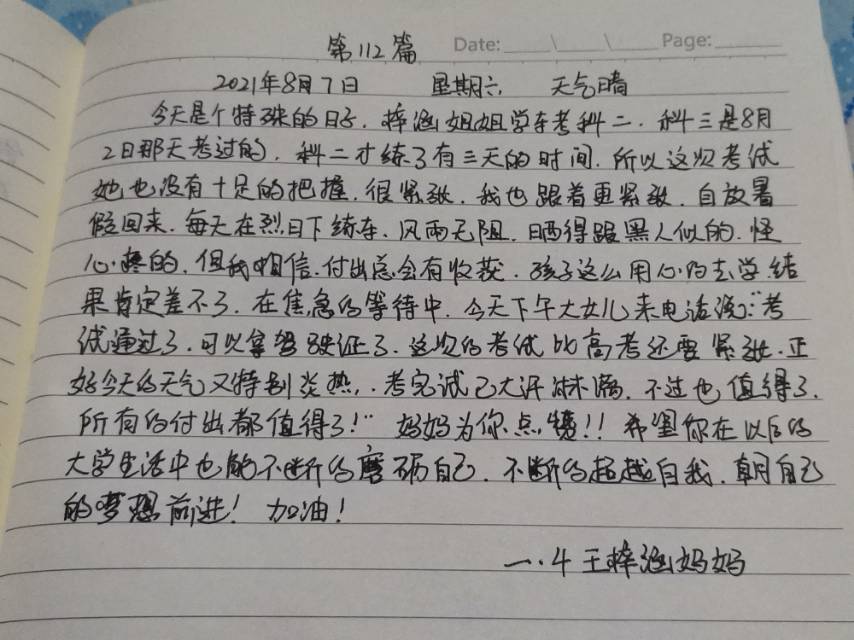 第112篇 Date: \ \ Page:
2021年8月7日 星期六 天气晴
今天是个特殊的日子.梓涵姐姐学车考科二.科三是8月
2日那天考过的.科二才练了有三天的时间.所以这次考试
她也没有十足的把握.很紧张.我也跟着更紧张.自放暑
假回来.每天在烈日下练车.风雨无阻.晒得跟黑人似的.怪
心疼的.但我相信.付出总会有收获.孩子这么用心的去学.结
果肯定差不了.在焦急的等待中.今天下午大女儿来电话说:"考
试通过了.可以拿驾驶证了.这次的考试比高考还要紧张.正
好今天的天气又特别炎热,.考完试已大汗淋漓.不过也值得了.
所有的付出都值得了!"妈妈为你点赞!!希望你在以后的
大学生活中也能不断的磨砺自己.不断的超越自我.朝自己
的梦想前进!加油!
一.4王梓涵妈妈